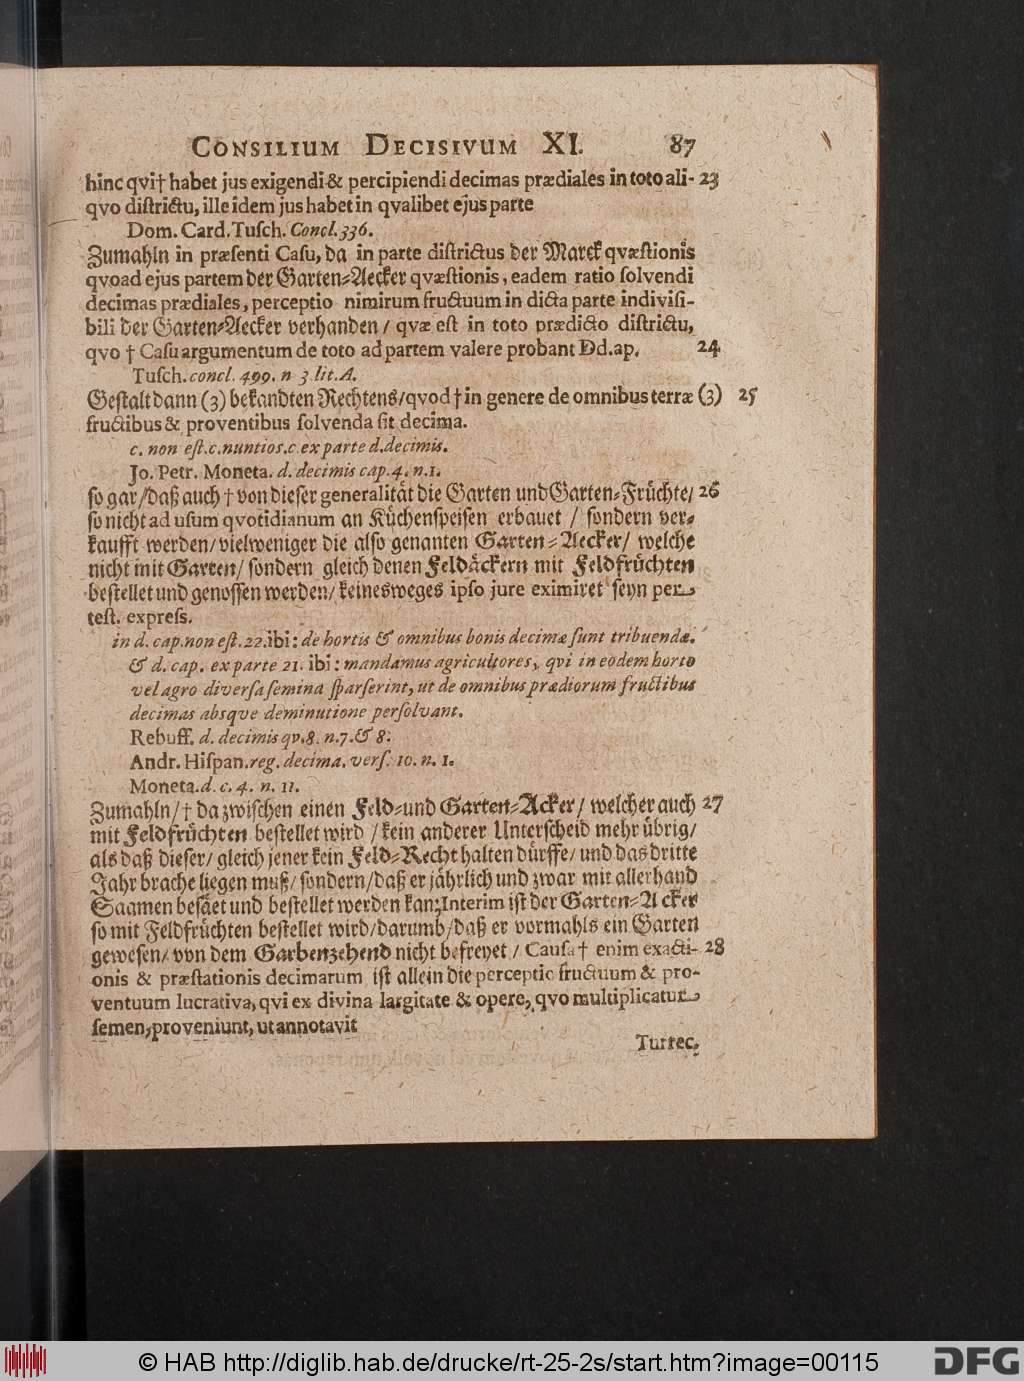 CONSILIUM DECISIVUM XI. 87
hinc qvi† habet jus exigendi & percipiendi decimas prædiales in toto ali- 23
qvo diſtrictu, ille idem jus habet in qvalibet ejus parte
Dom. Card. Tuſch. Concl. 336.
Zumahln in præſenti Caſu, da in parte diſtrictus der Marck qvæſtionis
qvoad ejus partem der Garten-Aecker qvæſtionis, eadem ratio ſolvendi
decimas prædiales, perceptio nimirum fructuum in dicta parte indiviſi-
bili der Garten-Aecker verhanden / qvæ eſt in toto prædicto diſtrictu,
qvo † Caſu argumentum de toto ad partem valere probant Dd. ap. 24
Tuſch. concl. 499. n 3 lit. A.
Geſtalt dann (3) bekandten Rechtens / qvod † in genere de omnibus terræ (3) 25
fructibus & proventibus ſolvenda ſit decima.
c. non eſt. c. nuntios. c. ex parte d. decimis.
Jo. Petr. Moneta. d. decimis cap. 4. n. 1.
ſo gar / daß auch † von dieſer generalität die Garten und Garten-Früchte / 26
ſo nicht ad uſum qvotidianum an Küchenſpeiſen erbauet / ſondern ver-
kaufft werden / vielweniger die alſo genanten Garten-Aecker / welche
nicht mit Garten / ſondern gleich denen Feldäckern mit Feldfrüchten
beſtellet und genoſſen werden / keinesweges ipſo jure eximiret ſeyn per
teſt. expreſs.
in d. cap. non eſt. 22. ibi: de hortis & omnibus bonis decimæ ſunt tribuendæ.
& d. cap. ex parte 21. ibi: mandamus agricultores, qvi in eodem horto
vel agro diverſa ſemina ſparſerint, ut de omnibus prædiorum fructibus
decimas absqve deminutione perſolvant.
Rebuff. d. decimis qv. 8. n. 7. & 8.
Andr. Hiſpan. reg. decima. verſ. 10. n. 1.
Moneta. d. c. 4. n. 11.
Zumahln / † da zwiſchen einen Feld- und Garten-Acker / welcher auch 27
mit Feldfrüchten beſtellet wird / kein anderer Unterſcheid mehr übrig /
als daß dieſer / gleich jener kein Feld-Recht halten dürffe / und das dritte
Jahr brache liegen muß / ſondern / daß er jährlich und zwar mit allerhand
Saamen beſäet und beſtellet werden kan; Interim iſt der Garten-Acker
ſo mit Feldfrüchten beſtellet wird / darumb / daß er vormahls ein Garten
geweſen / von dem Garbenzehend nicht befreyet / Cauſa † enim exacti- 28
onis & præſtationis decimarum iſt allein die perceptio fructuum & pro-
ventuum lucrativa, qvi ex divina largitate & opere, qvo multiplicatur
ſemen, proveniunt, ut annotavit
Turrec.
© HAB http://diglib.hab.de/drucke/rt-25-2s/start.htm?image=00115
DFG